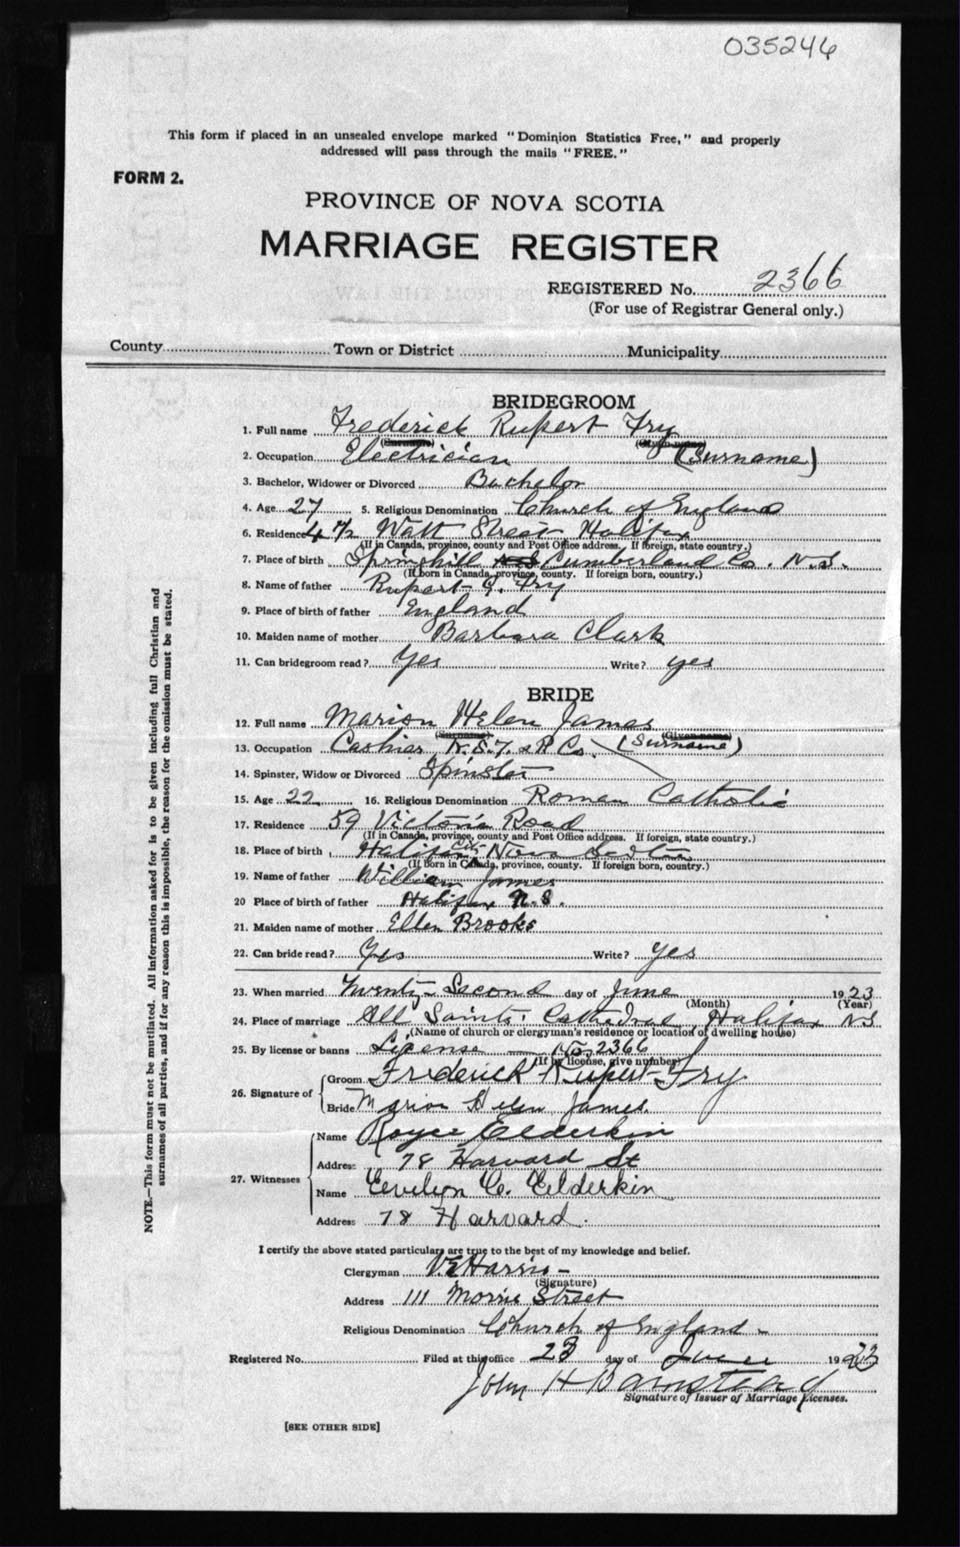 035246
This form if placed in an unsealed envelope marked "Dominion Statistics Free," and properly
addressed will pass through the mails "FREE."
FORM 2.
PROVINCE OF NOVA SCOTIA
MARRIAGE REGISTER
REGISTERED No. 2366
(For use of Registrar General only.)
County Town or District Municipality
BRIDEGROOM
1. Full name Frederick Rupert Fry
(Surname)
2. Occupation Electrician
3. Bachelor, Widower or Divorced Bachelor
4. Age 27 5. Religious Denomination Church of England
6. Residence 47½ Watt Street Halifax
(If in Canada, province, county and Post Office address. If foreign, state country.)
7. Place of birth Springhill Cumberland Co. N.S.
(If born in Canada, province, county. If foreign born, country.)
8. Name of father Rupert J. Fry
9. Place of birth of father England
10. Maiden name of mother Barbara Clark
11. Can bridegroom read? Yes Write? yes
BRIDE
12. Full name Marion Helen James
(Surname)
13. Occupation Cashier N.S.T. & P. Co.
14. Spinster, Widow or Divorced Spinster
15. Age 22 16. Religious Denomination Roman Catholic
17. Residence 59 Victoria Road
(If in Canada, province, county and Post Office address. If foreign, state country.)
18. Place of birth Halifax City Nova Scotia
(If born in Canada, province, county. If foreign born, country.)
19. Name of father William James
20 Place of birth of father Halifax N.S.
21. Maiden name of mother Ellen Brooks
22. Can bride read? Yes Write? Yes
23. When married Twenty-Second day of June 1923
(Month) (Year)
24. Place of marriage All Saints Cathedral Halifax NS
(Name of church or clergyman's residence or location of dwelling house)
25. By license or banns License — No. 2366
(If by license, give number)
26. Signature of Groom Frederick Rupert Fry
Bride Marion Helen James.
27. Witnesses Name Royce Elderkin
Address 78 Harvard St
Name Evelyn C. Elderkin
Address 78 Harvard.
I certify the above stated particulars are true to the best of my knowledge and belief.
Clergyman V.E. Harris -
(Signature)
Address 111 Morris Street
Religious Denomination Church of England -
Registered No. Filed at this office 23 day of June 1923
John H Barnstead
Signature of Issuer of Marriage Licenses.
[SEE OTHER SIDE]
NOTE.—This form must not be mutilated. All information asked for is to be given including full Christian and
surnames of all parties, and if for any reason this is impossible, the reason for the omission must be stated.